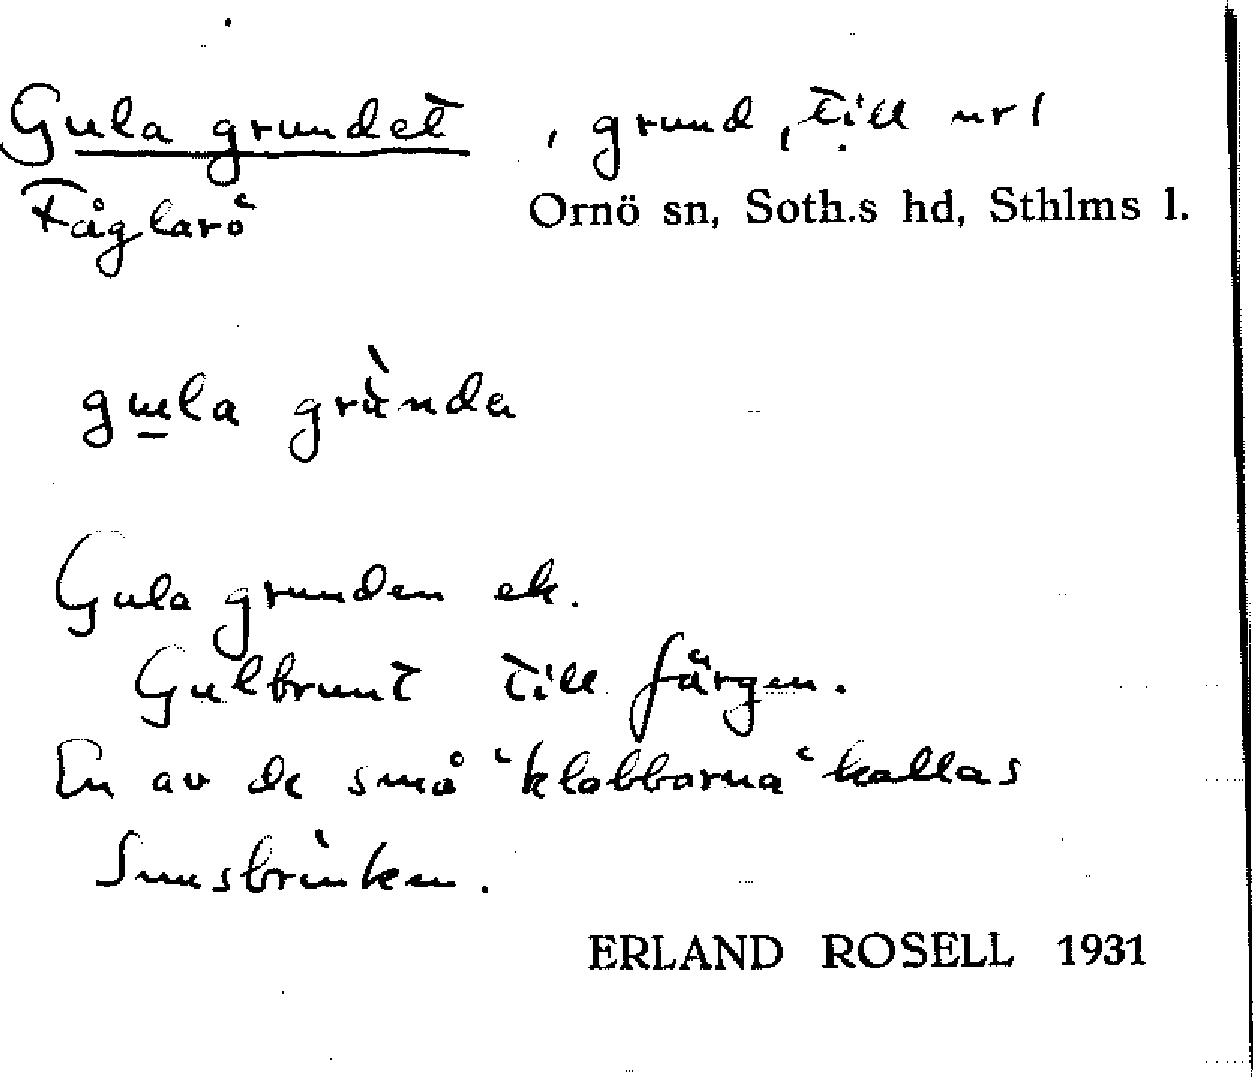 Gula grundet, grund, till nr 1
Fåglarö Ornö sn, Soth.s hd, Sthlms l.
gula grùnda
Gula grunden ek.
Gulbrunt till färgen.
En av de små "klobbarna" kallas
ERLAND ROSELL 1931